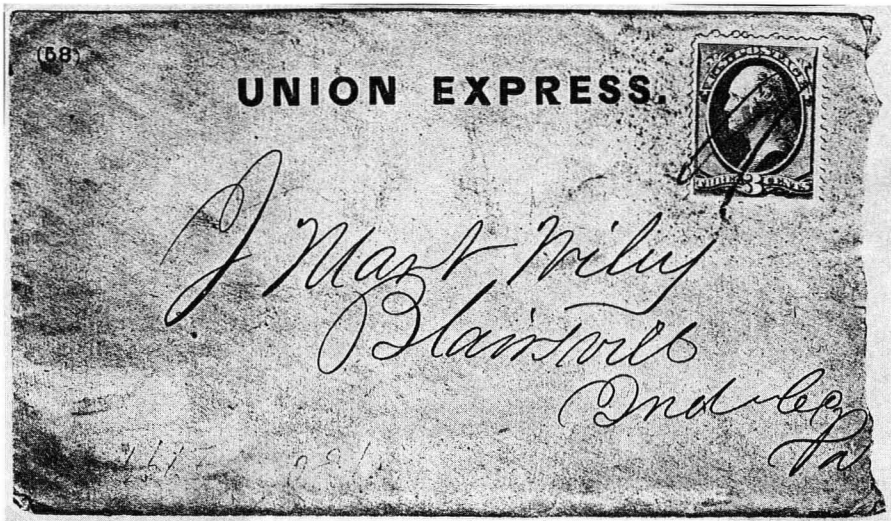 (58)
UNION EXPRESS.
U.S. POSTAGE
3
J Mart Wiley
Blairsvill
Ind Co
Pa